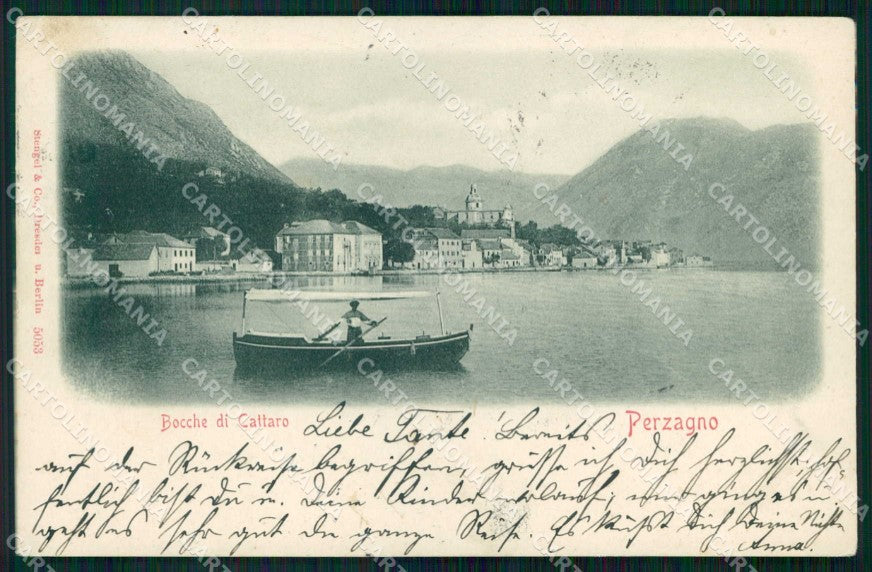 Stengel & Co., Dresden u. Berlin 5053
Bocche di Cattaro
Perzagno
Liebe Tante! Bereits
auf der Rückreise begriffen, grüsse ich Dich herzlichst, hof-
fentlich bist Du u. Deine Kinder wohlauf; mir ging es u
geht es sehr gut die ganze Reise. Es küsst Dich Deine Nichte
Anna.
CARTOLINOMANIA